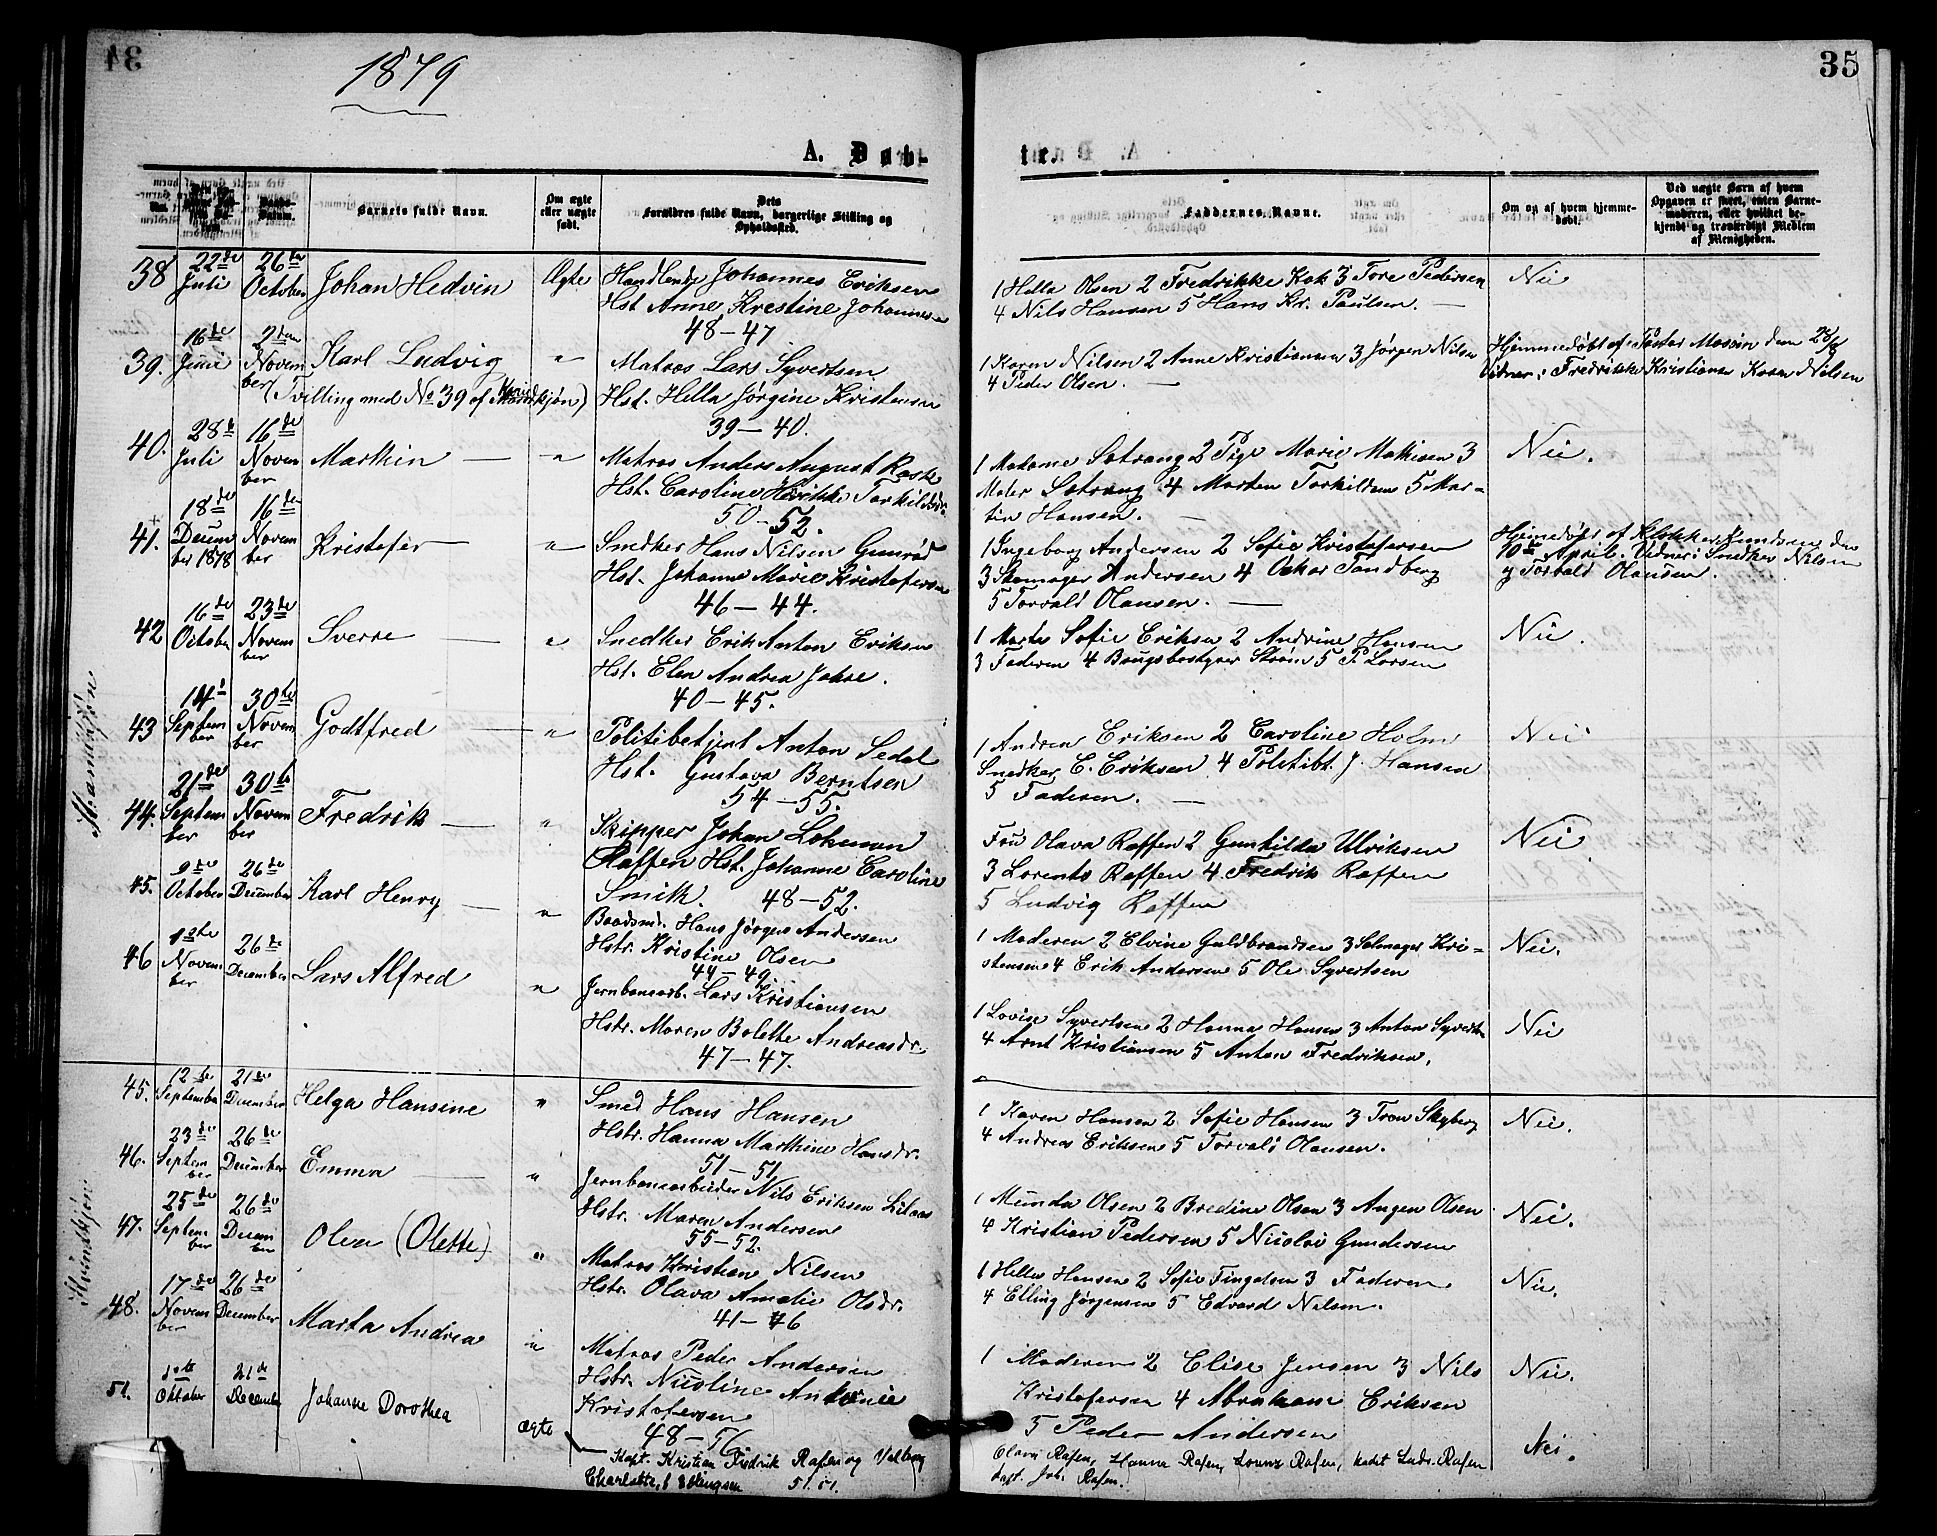 34
1879
A. Døb-
No.
Barnets fulde Navn.
Om ægte eller uægte født.
Dets Forældres fulde Navn, borgerlige Stilling og Opholdssted.
38 22de Juli 26de October Johan Hedvin Ægte Handlende Johannes Eriksen
Hst Anne Kristine Johannes
48-47
39. 16de Juni 2den November Karl Ludvig " Matros Lars Syvertsen
(Tvilling med No 39 af Kvindkjøn) Hst. Hella Jørgine Kristensen
39-40.
40. 28de Juli 16de November Marthin " Matros Anders August Raske
Hst. Caroline Torkildsdr.
50-52.
41. 18de December 1878 16de November Kristofer " Snedker Hans Nilsen Gunrød
Hst. Johanne Marie Kristofersen
46-44.
42 16de October 23de November Sverre " Snedker Erik Anton Eriksen
Hst. Elen Andrea Johre.
40-45.
43 14de September 30te November Godtfred " Politibetjent Anton Sedal
Hst. Gustava Berntsen
54-55.
44. 21de September 30te November Fredrik " Skipper Johan Lohmann
Raffen Hst. Johanne Caroline
Smith. 48-52.
45. 9de October 26de December Karl Henry " Baadsmd. Hans Jørgen Andersen
Hstr. Kristine Olsen
44-49.
46 November 26de December Lars Alfred " Jernbanearb. Lars Kristiansen
Hstr. Maren Bolette Andreasdr.
47-47.
Mandkjøn
45. 12te September 21de December Helga Hansine " Smed Hans Hansen
Hstr. Hanna Marthine Hansdr.
51-51
46. 23de September 26de December Emma " Jernbanearbeider Nils Eriksen
Hstr. Maren Andersen
55-52.
47. 25de September 26de December Olea (Olette) " Matros Kristian Nilsen
Hstr. Olava Amalie Olsdr.
41-46
48. 17de November 26de December Marta Andrea " Matros Peder Andersen
Hstr. Nicoline Antonie
Kristofersen
48-56
51. 1ste Oktober 21de December Johanne Dorothea Ægte Kapt. Kristian Fredrik Rafen og Valborg
Charlotte, f. Ellingsen 51. 51.
Kvindkjøn
35
te.
Faddernes Navne.
Om og af hvem hjemmedøbt.
Ved uægte Barn af hvem Opgaven er skeet, enten Barnemoderen, eller hvilket bekjendt og troværdigt Medlem af Menigheden.
1 Hella Olsen 2 Fredrikke Kok 3 Tore Pedersen Nei
4 Nils Hansen 5 Hans Kr. Paulsen.
1 Karen Nilsen 2 Anne Kristiansen 3 Jørgen Nilsen Hjemmedøbt af Pastor den 28/8
4 Peder Olsen. Vidner: Fredrikke Kristiansen Karen Nilsen
1 Madame Sotrang 2 Pige Marie Mathisen 3 Nei.
Maler Sotrang 4 Morten Torkildsen 5 Mar-
tin Hansen.
1 Ingeborg Andersen 2 Sofie Kristofersen Hjemmedøbt af Klokker Knudsen den
3 Skomager Andersen 4 Oskar Tandberg 10de April. Vidner: Snedker Nilsen
5 Torvald Olaussen. og Torvald Olaussen.
1 Marta Sofie Eriksen 2 Andrine Hansen Nei.
3 Faderen 4 Brugsbestyrer Strøm 5 P. Larsen
1 Andrea Eriksen 2 Caroline Holm Nei
Snedker E. Eriksen 4 Politibt. J. Hansen
5 Faderen.
Fru Olava Raffen 2 Gunhilda Ulriksen Nei
3 Lorents Raffen 4 Fredrik Raffen
5 Ludvig Raffen
1 Moderen 2 Elvine Guldbrandsen 3 Kri- Nei.
stensen 4 Erik Andersen 5 Ole Syvertsen
1 Lovise Syvertsen 2 Hanna Hansen 3 Anton Syvertsen Nei
4 Arnt Kristiansen 5 Anton Fredriksen.
1 Karen Hansen 2 Sofie Hansen 3 Tron Skyberg Nei.
4 Andreas Eriksen 5 Torvald Olaussen.
1 Munda Olsen 2 Bredine Olsen 3 Augen Olsen Nei.
4 Kristian Pedersen 5 Nicolai Gundersen
1 Hella Hansen 2 Sofie Fingalsen 3 Faderen Nei.
4 Elling Jørgensen 5 Edvard Nilsen.
1 Moderen 2 Elise Jensen 3 Nils Nei.
Kristofersen 4 Abraham Eriksen
5 Peder Andersen
Olava Rafen, Hanna Rafen, Lorenz Rafen, kadet Ludv. Rafen Nei.
kapt. Joh. Rafen.